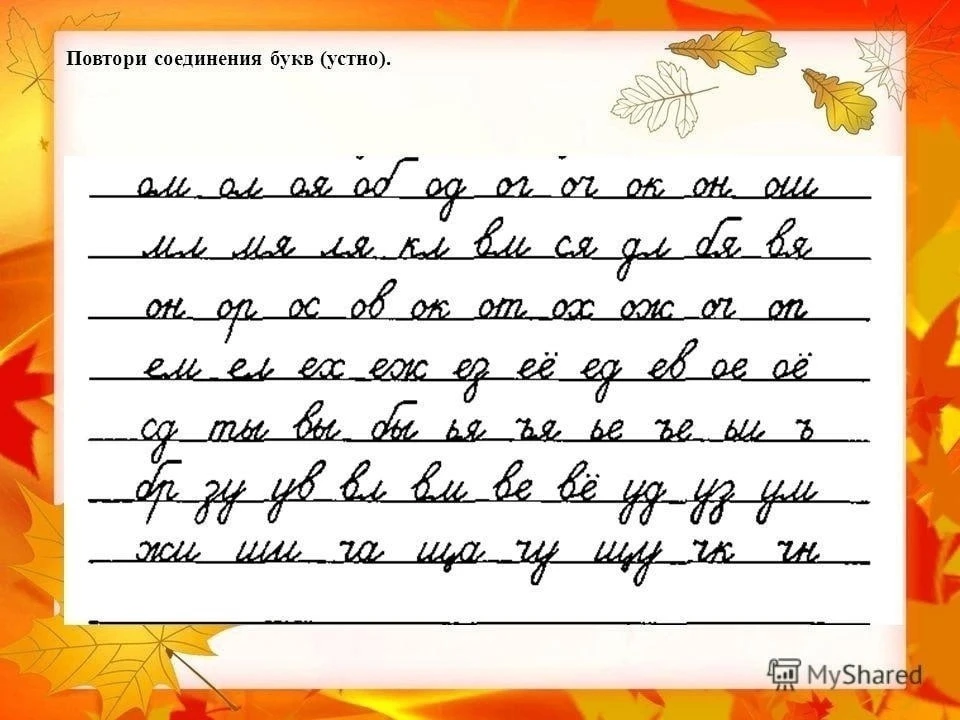 Повтори соединения букв (устно).
ом ол оя об од ог оч ок он ош
мл мя ля кл вм ся дл бя вя
он ор ос ов ок от ох ож оч оп
ем ел ех еж ез её ед ев ое оё
сд ты вы бы ья ъя ье ъе ьи ъ
бр зу ув вл вм ве вё уд уз ум
жи ши ча ща чу щу чк чн
MyShared